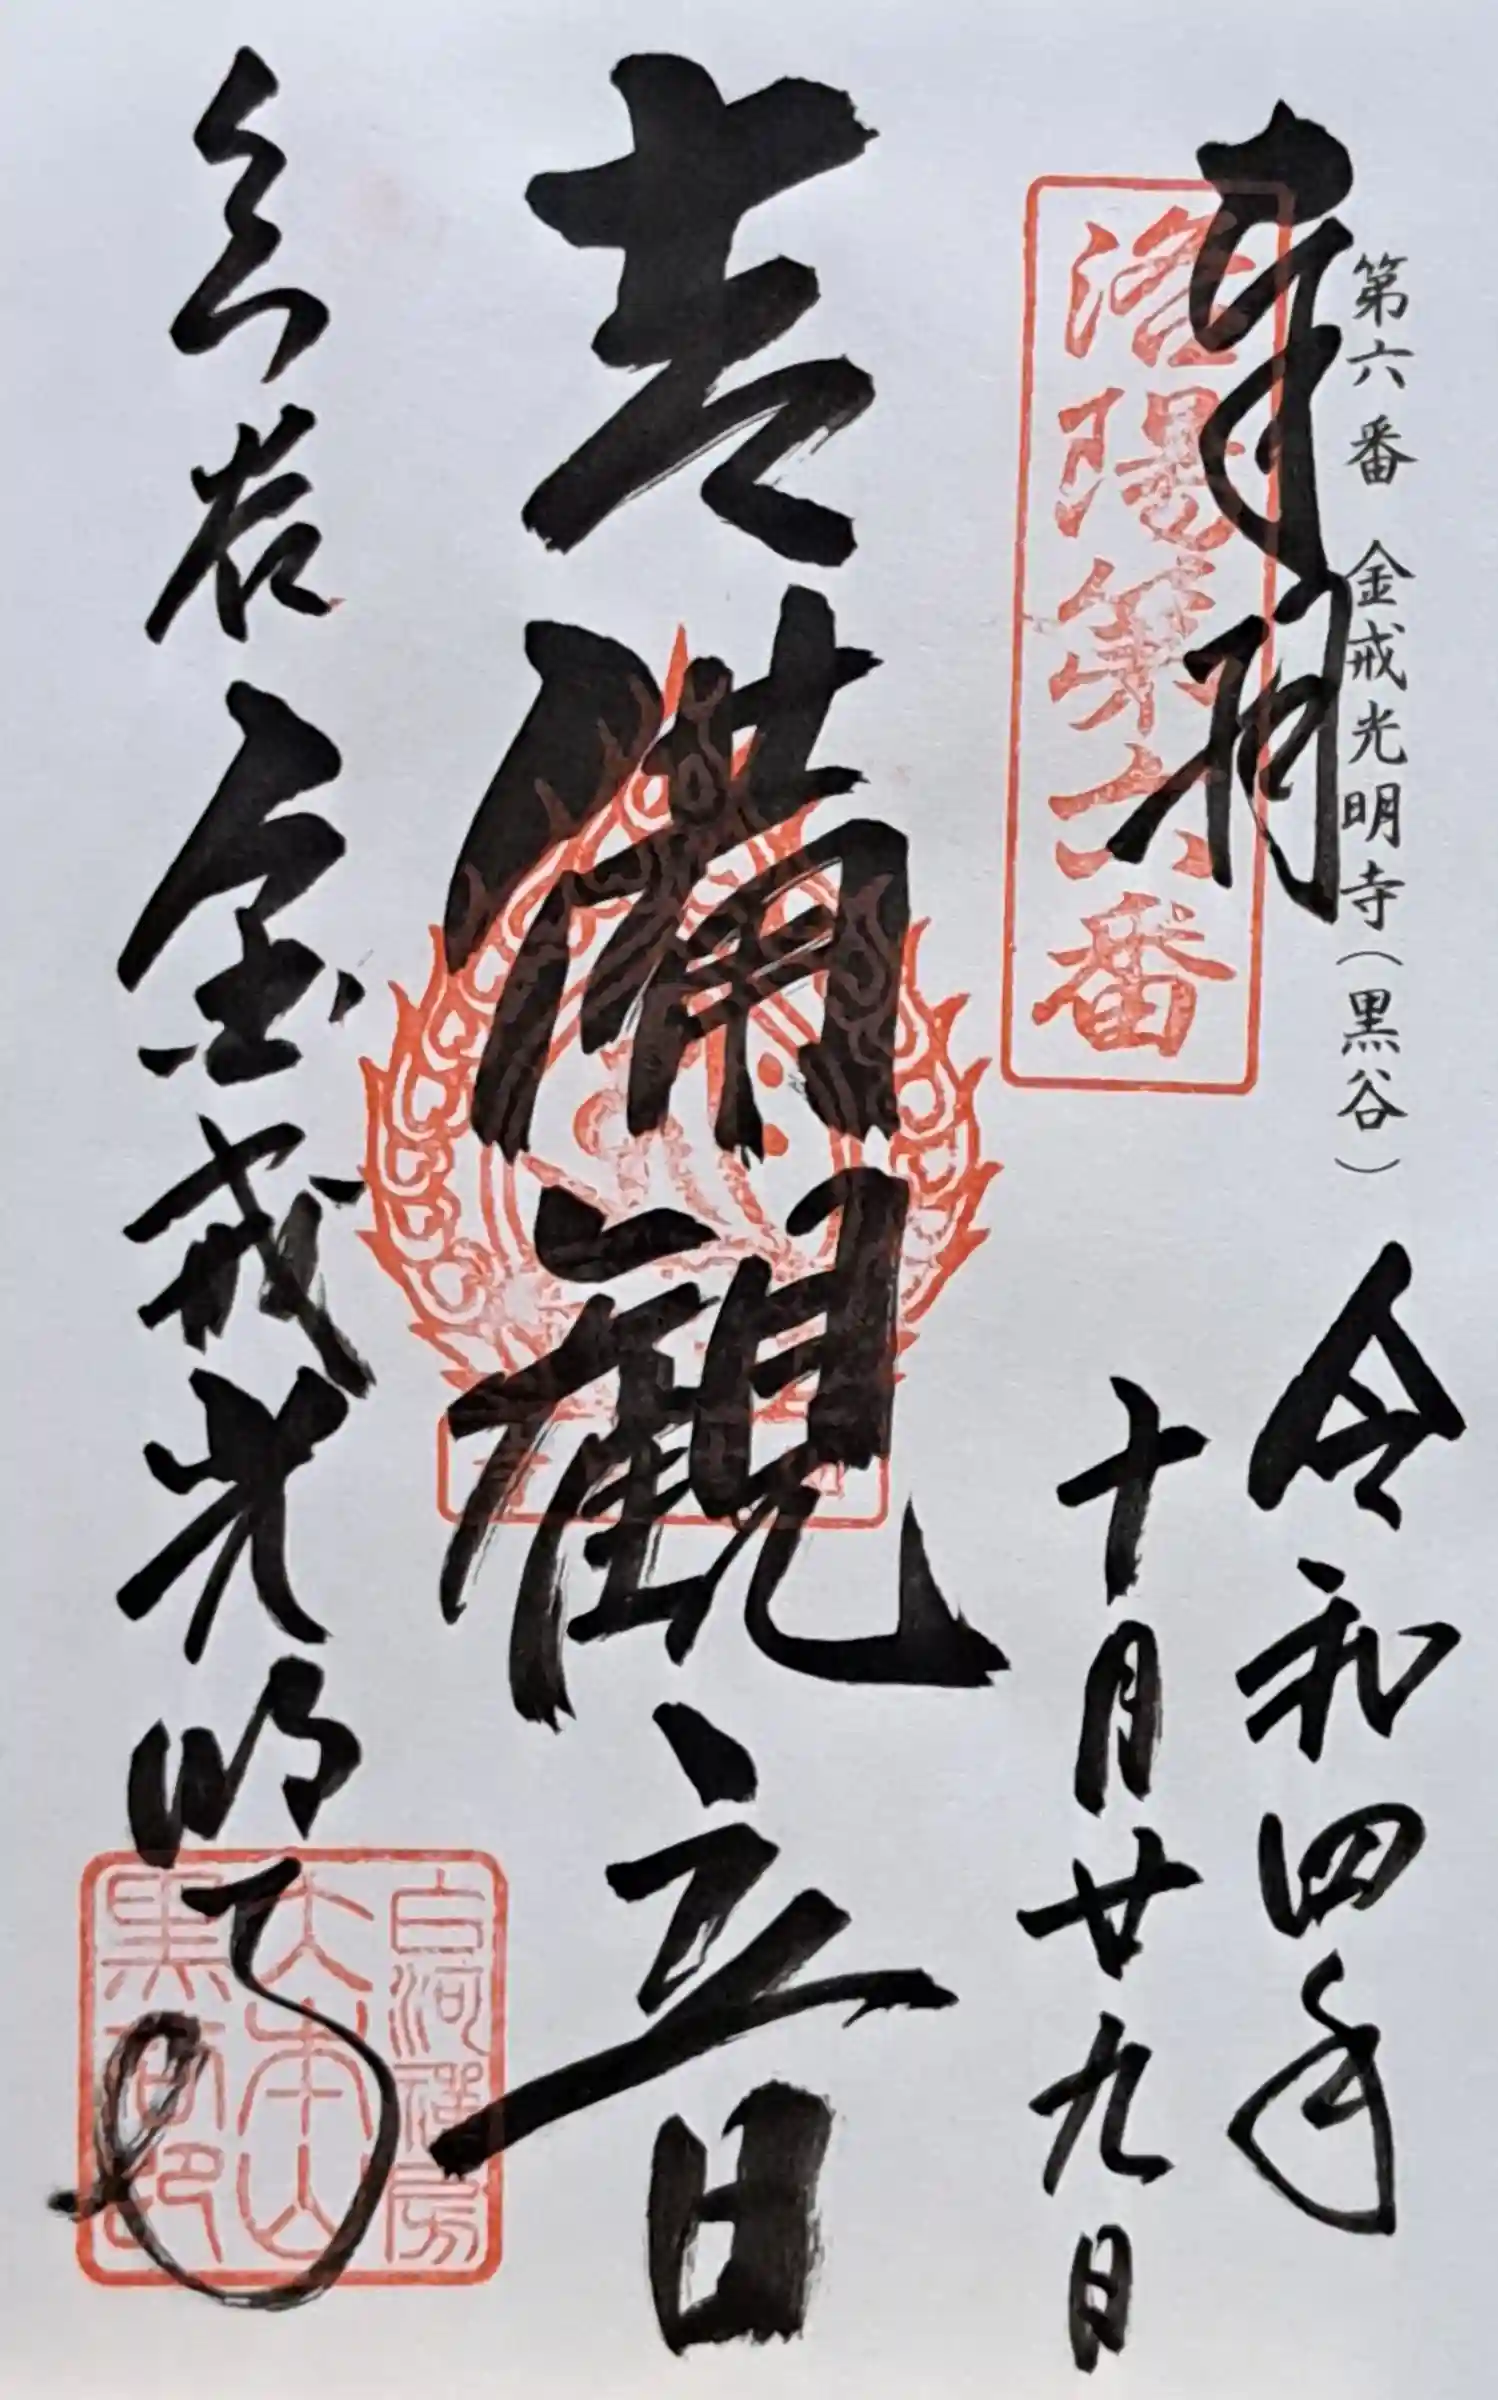 第六番 金戒光明寺（黒谷）
奉拝
洛陽第六番
令和四年
十月廿九日
吉備観音
白河禅房
大本山
黒谷
金戒光明寺